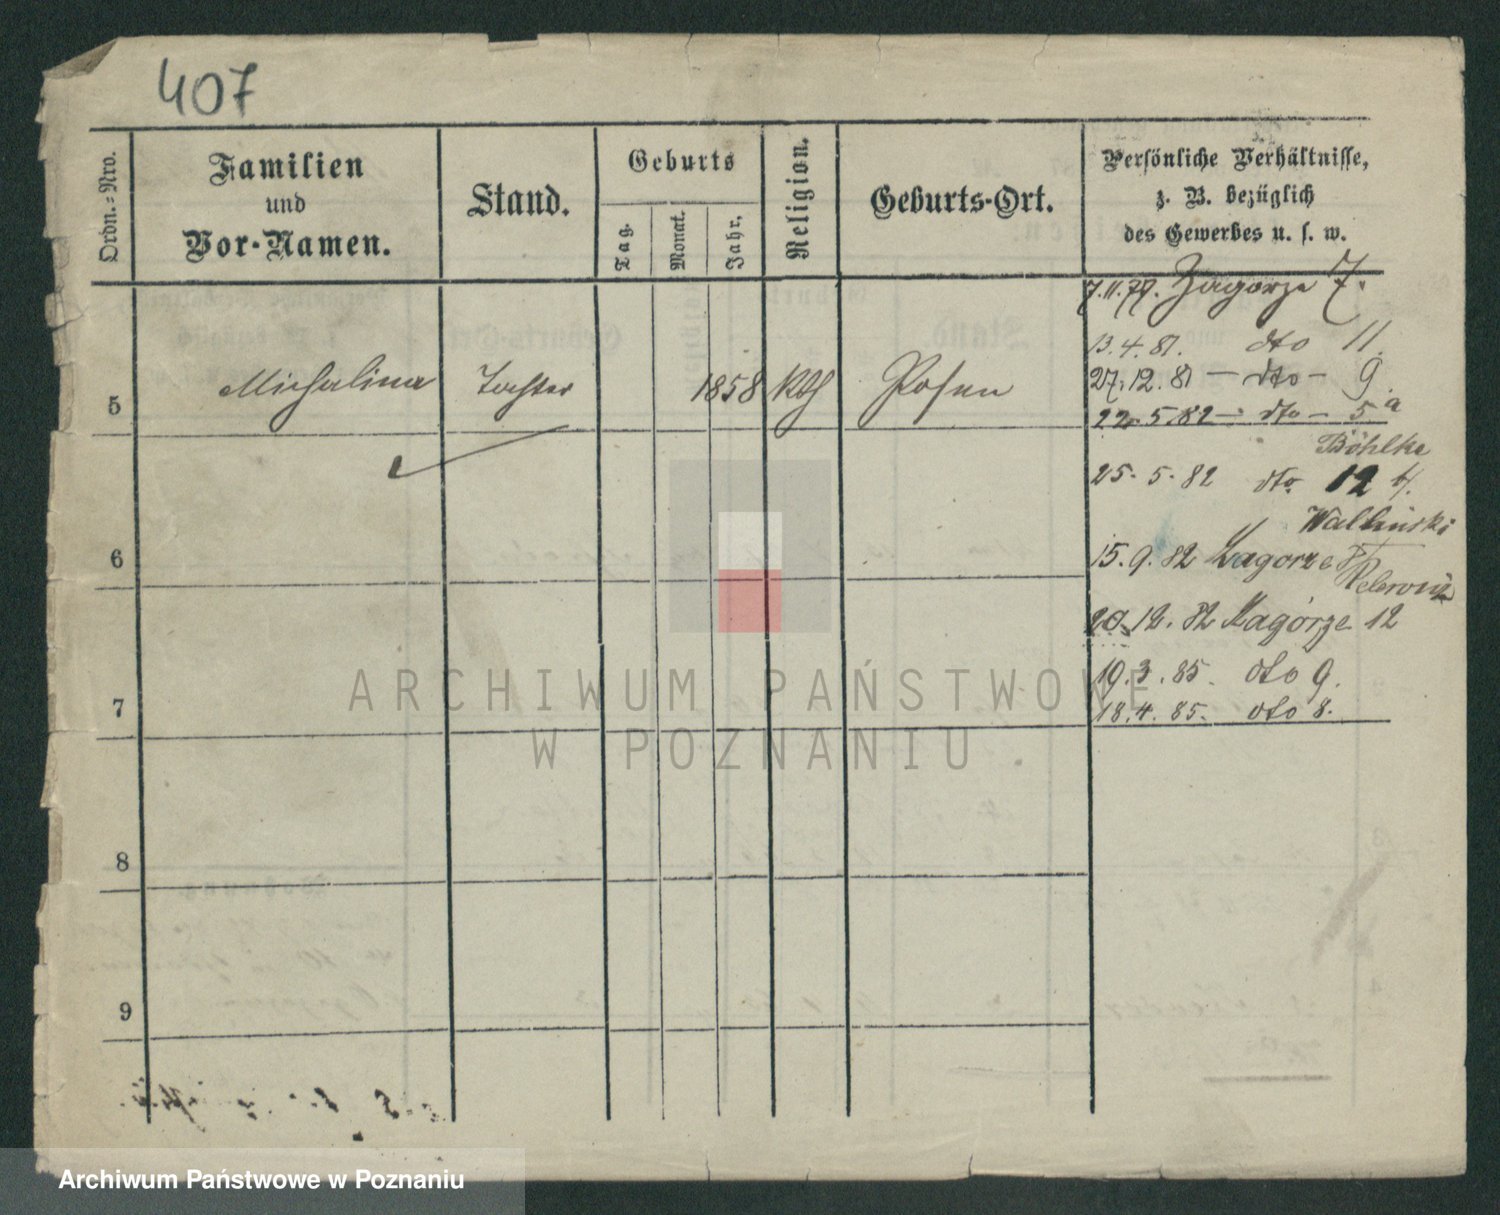 407
Ordn.-Nro.
Familien
und
Vor-Namen.
Stand.
Geburts
Tag.
Monat.
Jahr.
Religion.
Geburts-Ort.
Persönliche Verhältnisse,
z. B. bezüglich
des Gewerbes u. s. w.
7.11.79. Zagorze 7.
13.4.81. dto 11.
27.12.81 – dto – 9.
5 Michalina Tochter 1858 kth Posen
22.5.82 – dto – 5a
Böhlke
25.5.82 dto 12
Wallinski
6
15.9.82 Zagorze
20.12.82 Zagórze 12
19.3.85. dto 9.
7
18.4.85. dto 8.
8
9
ARCHIWUM PAŃSTWOWE
W POZNANIU
Archiwum Państwowe w Poznaniu